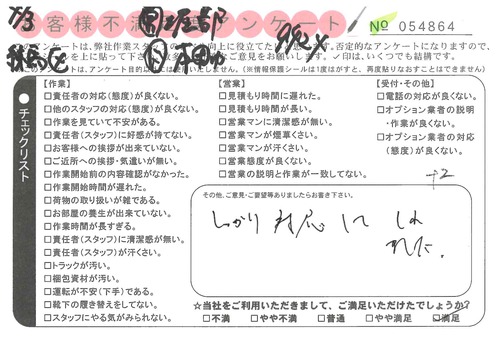 お客様不満足度アンケート
No 054864
本アンケートは、弊社作業スタッフの
向上に役立てた
思います。否定的なアンケートになりますので、
をシール上に貼って下さい
ご意見をお願いします。✓印は、いくつでも結構です。
このアンケートは、アンケート目的以外には
いたしません。(※情報保護シールは1度はがすと、再度貼りなおすことはできません。)
チェックリスト
【作業】
□責任者の対応(態度)が良くない。
□他のスタッフの対応(態度)が良くない。
□作業を見ていて不安がある。
□責任者(スタッフ)に好感が持てない。
□お客様への挨拶が出来ていない。
□ご近所への挨拶・気遣いが無い。
□作業開始前の内容確認がなかった。
□作業開始時間が遅れた。
□荷物の取り扱いが雑である。
□お部屋の養生が出来ていない。
□作業時間が長すぎる。
□責任者(スタッフ)に清潔感が無い。
□責任者(スタッフ)が汗くさい。
□トラックが汚い。
□梱包資材が汚い。
□運転が不安(下手)である。
□靴下の履き替えをしてない。
□スタッフにやる気がみられない。
【営業】
□見積もり時間に遅れた。
□見積もり時間が長い。
□営業マンに清潔感が無い。
□営業マンが煙草くさい。
□営業マンが汗くさい。
□営業態度が良くない。
□営業の説明と作業が一致してない。
【受付・その他】
□電話の対応が良くない。
□オプション業者の説明
・作業が良くない。
□オプション業者の対応
(態度)が良くない。
+2
その他、ご意見・ご要望等ありましたらお書き下さい。
しっかり 対応 して くれ
れた。
☆当社をご利用いただきまして、ご満足いただけたでしょうか?
□不満 □やや不満 □普通 □やや満足 □満足